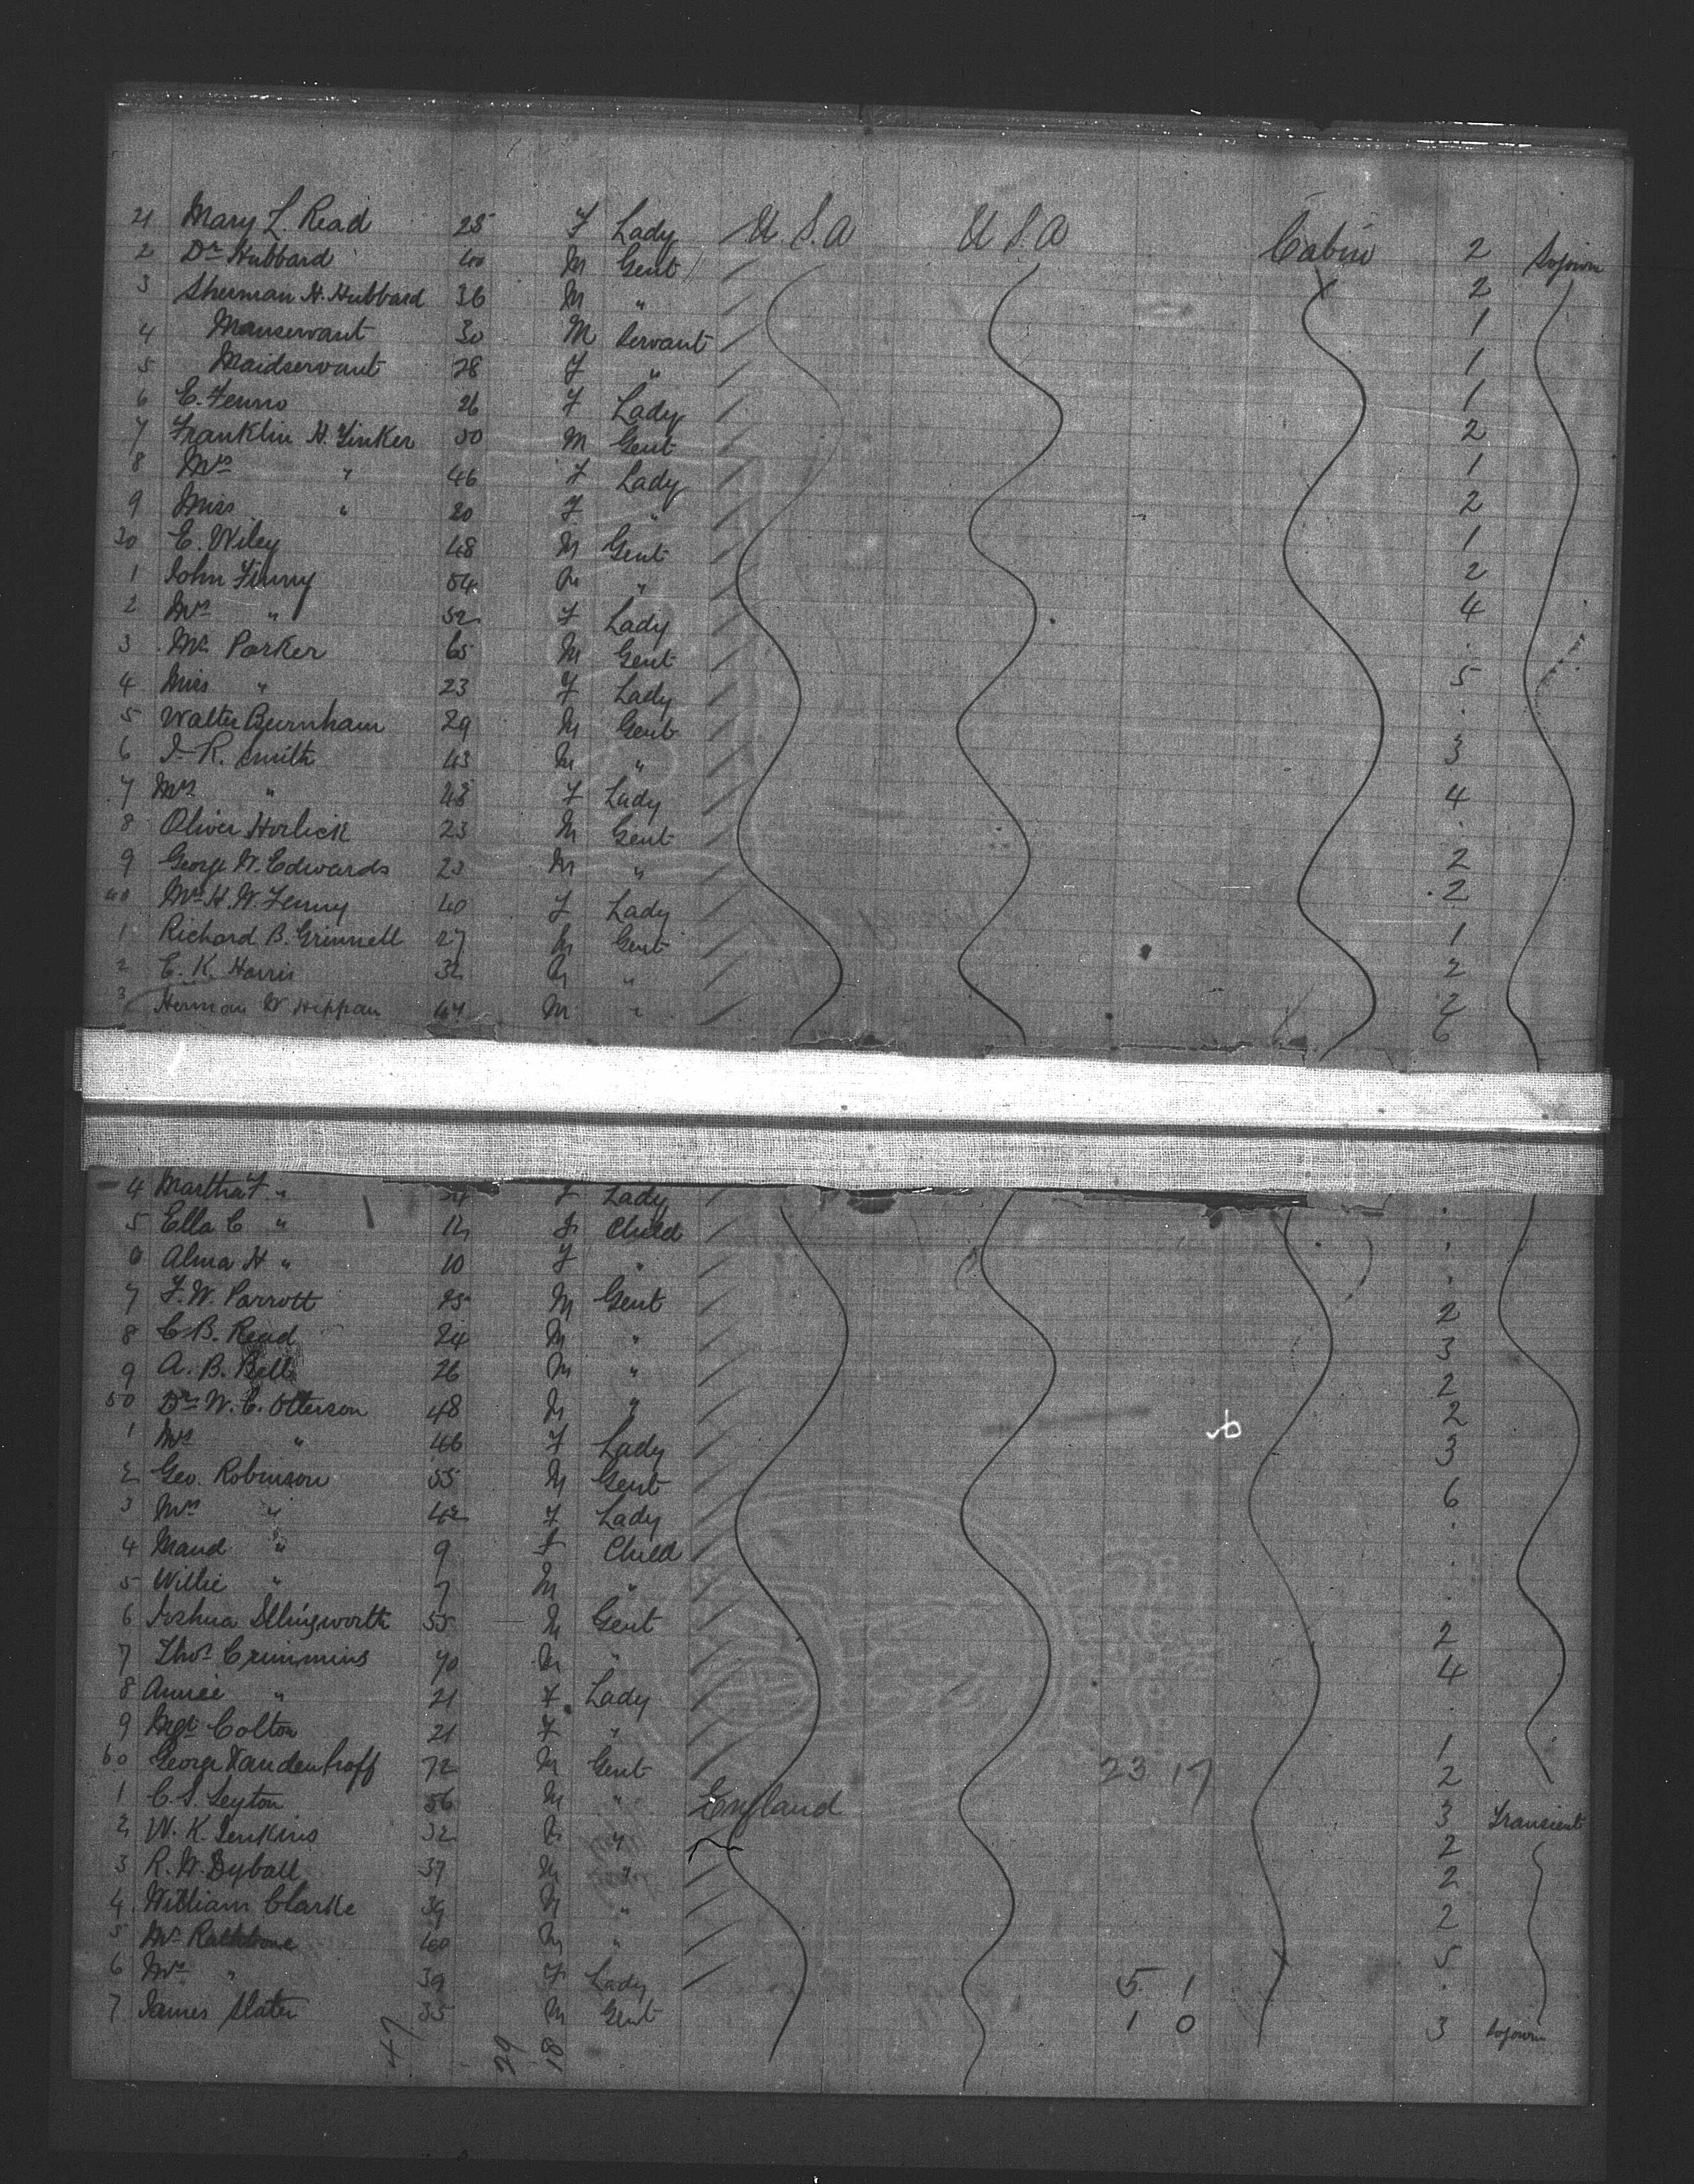 21 Mary L. Read 25 F Lady U.S.A U.S.A Cabin 2 Sojourn
2 Dr Hubbard 40 M Gent 2
3 Sherman H. Hubbard 36 M " 1
4 Manservant 30 M Servant 1
5 Maidservant 28 F " 1
6 E. Fenno 26 F Lady 2
7 Franklin H. Tinker 50 M Gent 1
8 Mrs " 46 F Lady 2
9 Miss " 20 F " 1
30 E. Wiley 48 M Gent 2
1 John Finny 54 M " 4
2 Mrs " 52 F Lady .
3 Mr. Parker 65 M Gent 5
4 Miss " 23 F Lady .
5 Walter Burnham 29 M Gent 3
6 J. R. Smith 43 M " 4
7 Mrs " 48 F Lady .
8 Oliver Horlick 23 M Gent 2
9 George W. Edwards 23 M " 2
40 Mrs H. W. Fenny 40 F Lady 1
1 Richard B. Grinnell 27 M Gent 2
2 E. K. Harris 32 M " 2
3 Herman W Hippau 47 M " 6
4 Martha F " F Lady .
5 Ella C " 12 F Child .
6 Alma H " 10 F " .
7 F. W. Parrott 25 M Gent 2
8 C B. Read 24 M " 3
9 A. B. Bell 26 M " 2
50 Dr W. C. Otterson 48 M " 2
1 Mrs " 46 F Lady 3
2 Geo. Robinson 55 M Gent 6
3 Mrs " 42 F Lady .
4 Maud " 9 F Child .
5 Willie " 7 M " .
6 Joshua Illingworth 55 M Gent 2
7 Thos Crimmins 40 M " 4
8 Annie " 21 F Lady .
9 Mgt Colton 21 F " 1
60 George Vandenhoff 72 M Gent 23 17 2
1 C. S. Leyton 56 M " England 3 Transient
2 W. K. Jenkins 32 M " 2
3 R. W. Dyball 37 M " 2
4 William Clarke 39 M " 2
5 Mr Rathbone 40 M " 5
6 Mrs " 39 F Lady 5 1 .
7 James Slater 35 M Gent 1 0 3 Sojourn
47 29 18